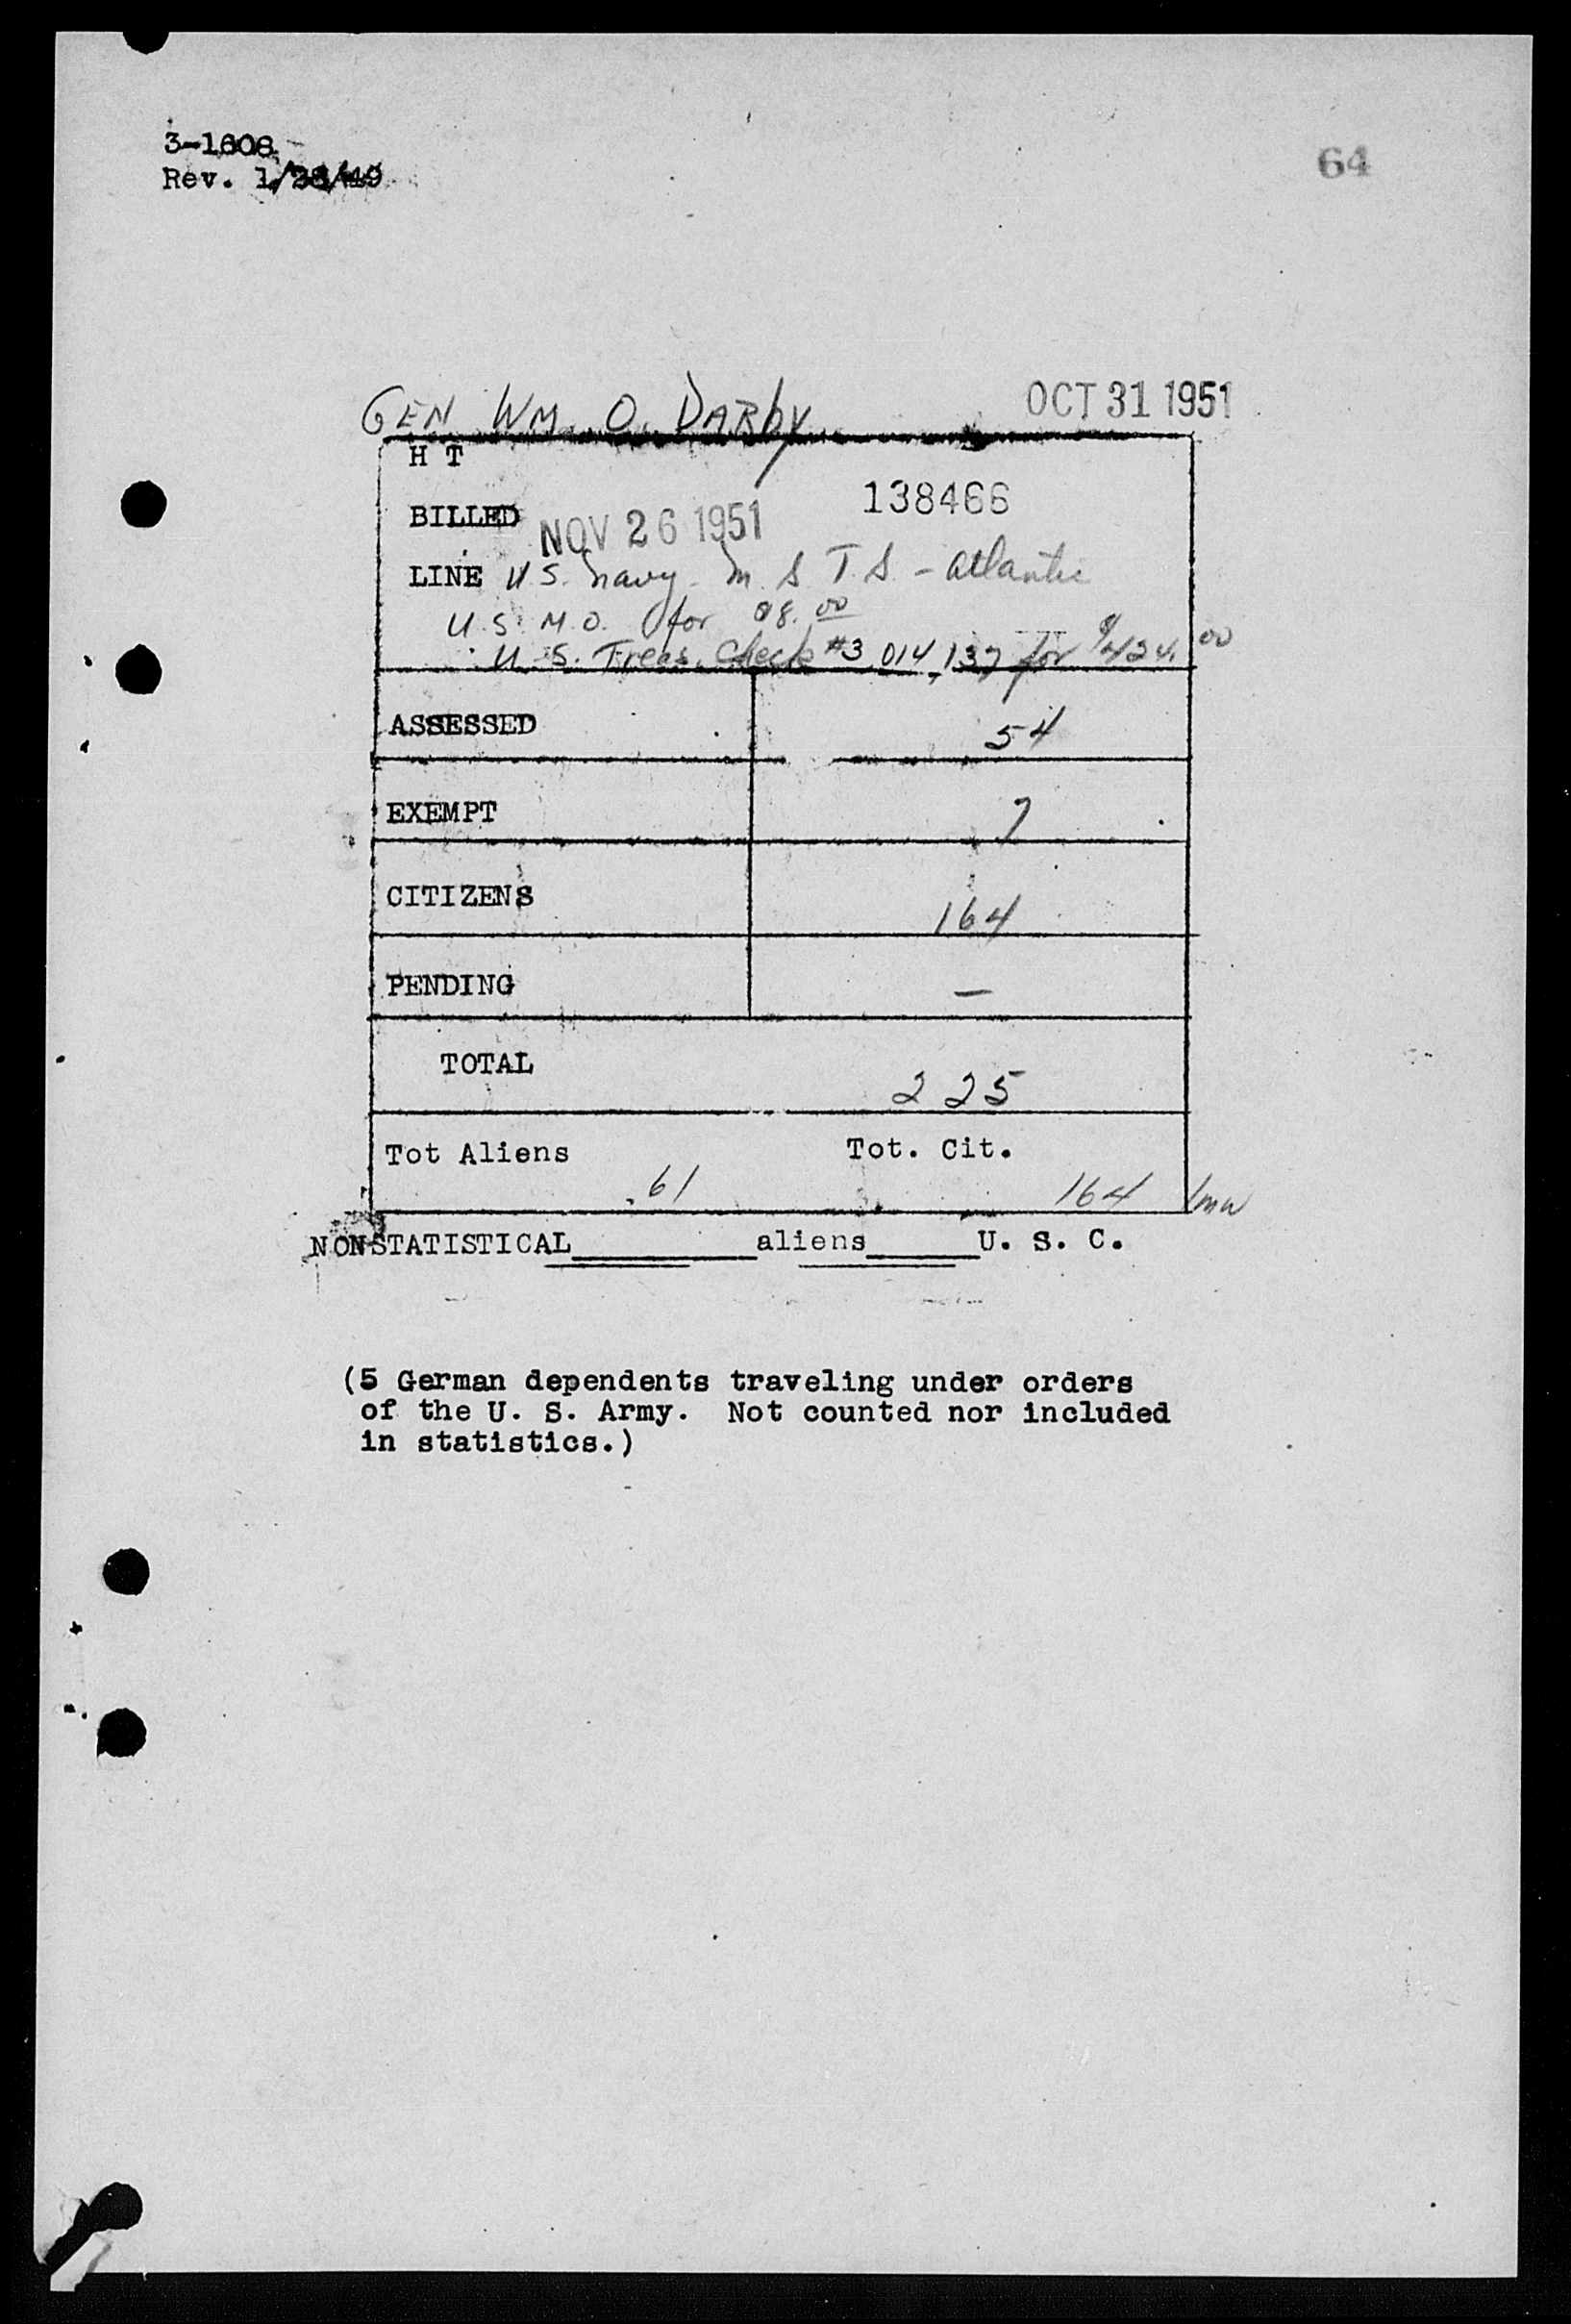 3-1608
Rev. 1/28/49
64
GEN WM. O. DARBY OCT 31 1951
H T
BILLED NOV 26 1951 138466
LINE U.S. Navy - M.S.T.S. - Atlantic
U.S. M.O. for 08.00
U.S. Treas. Check #3,014,137 for $424.00
ASSESSED 54
EXEMPT 7
CITIZENS 164
PENDING —
TOTAL 225
Tot Aliens Tot. Cit.
61 164 lmw
NONSTATISTICAL_____aliens_____U. S. C.
(5 German dependents traveling under orders
of the U. S. Army. Not counted nor included
in statistics.)